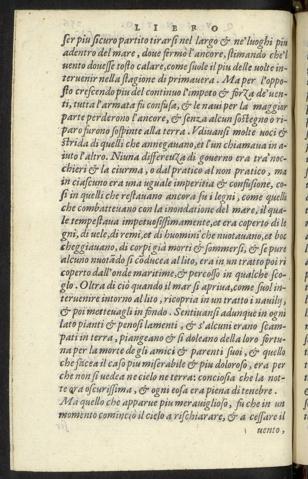 LIBRO
ser piu sicuro partito tirarsi nel largo & ne' luoghi piu
adentro del mare, doue fermò l'ancore, stimando che'l
uento douesse tosto calare, come suole il piu delle uolte in-
teruenir nella stagione di primauera. Ma per l'oppo-
sto crescendo piu del continuo l'impeto & forza de' uen-
ti, tutta l'armata fu confusa, & le naui per la maggior
parte perderono l'ancore, & senza alcun sostegno o ri-
paro furono sospinte alla terra. Vdiuansi molte uoci &
strida di quelli che annegauano, et l'un chiamaua in a-
iuto l'altro. Niuna differenza di gouerno era tra' noc-
chieri & la ciurma, o dal pratico al non pratico, ma
in ciascuno era una uguale imperitia & confusione, co-
si in quelli che restauano ancora su i legni, come quelli
che combatteuano con la inondatione del mare, il qua-
le tempestaua impetuosissimamente, et era coperto di le
gni, di uele, di remi, et di huomini che notauano, et boc
cheggiauano, di corpi già morti & sommersi, & se pure
alcuno notādo si cōducea al lito, era in un tratto poi ri
coperto dall'onde maritime, & percosso in qualche sco-
glo. Oltra di ciò quando il mar si apriua, come suol in-
teruenire intorno al lito, ricopria in un tratto i nauilij,
& poi metteuagli in fondo. Sentiuansi adunque in ogni
lato pianti & penosi lamenti, & s'alcuni erano scam-
pati in terra, piangeano & si doleano della loro fortu-
na per la morte de gli amici & parenti suoi, & quello
che facea il caso piu miserabile & piu doloroso, era per
che non si uedea ne cielo ne terra: conciosia che la not-
te era oscurissima, & ogni cosa era piena di tenebre.
Ma quello che apparue piu merauiglioso, fu che in un
momento cominciò il cielo a rischiarare, & a cessare il
uento,